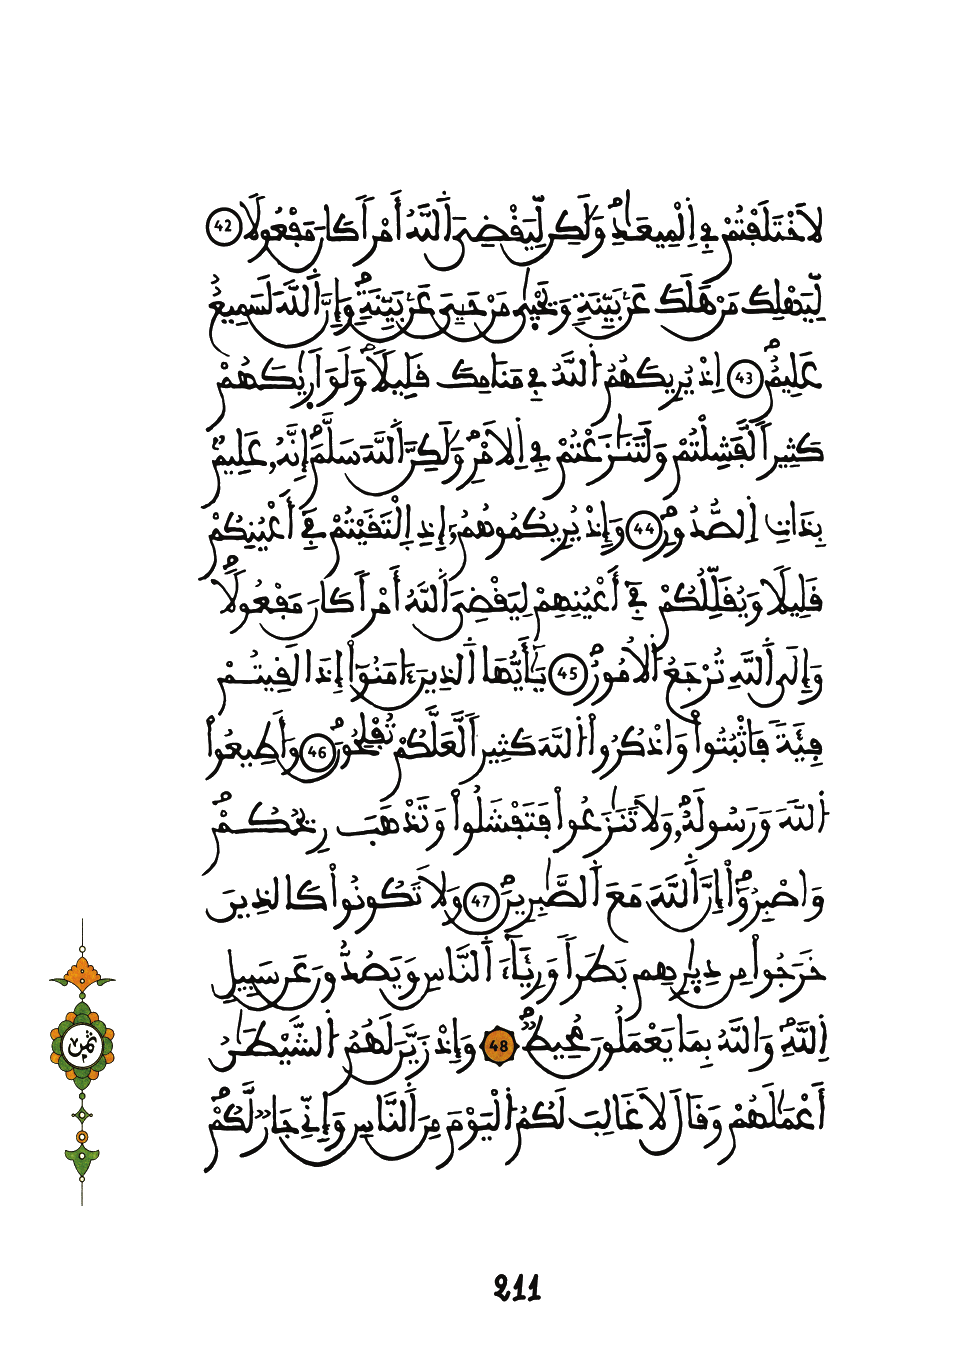 لَاخْتَلَفْتُمْ فِي اِ۬لْمِيعَٰدِ وَلَٰكِن لِّيَقْضِيَ اَ۬للَّهُ أَمْراٗ كَانَ مَفْعُولاٗ 42
لِّيَهْلِكَ مَنْ هَلَكَ عَنۢ بَيِّنَةٖ وَيَحْيَىٰ مَنْ حَيِيَ عَنۢ بَيِّنَةٖ وَإِنَّ اَ۬للَّهَ لَسَمِيعٌ
عَلِيمٌ 43 اِذْ يُرِيكَهُمُ اُ۬للَّهُ فِي مَنَامِكَ قَلِيلاٗ وَلَوَ اَر۪يٰكَهُمْ
كَثِيراٗ لَّفَشِلْتُمْ وَلَتَنَٰزَعْتُمْ فِي اِ۬لَامْرِ وَلَٰكِنَّ اَ۬للَّهَ سَلَّمَ إِنَّهُۥ عَلِيمُۢ
بِذَاتِ اِ۬لصُّدُورِ 44 وَإِذْ يُرِيكُمُوهُمُۥٓ إِذِ اِ۬لْتَقَيْتُمْ فِيٓ أَعْيُنِكُمْ
قَلِيلاٗ وَيُقَلِّلُكُمْ فِيٓ أَعْيُنِهِمْ لِيَقْضِيَ اَ۬للَّهُ أَمْراٗ كَانَ مَفْعُولاٗ
وَإِلَى اَ۬للَّهِ تُرْجَعُ اُ۬لُامُورُ 45 يَٰٓأَيُّهَا اَ۬لذِينَ ءَامَنُوٓاْ إِذَا لَقِيتُمْ
فِئَةٗ فَاثْبُتُواْ وَاذْكُرُواْ اُ۬للَّهَ كَثِيراٗ لَّعَلَّكُمْ تُفْلِحُونَ 46 وَأَطِيعُواْ
اُ۬للَّهَ وَرَسُولَهُۥ وَلَا تَنَٰزَعُواْ فَتَفْشَلُواْ وَتَذْهَبَ رِيحُكُمْ
وَاصْبِرُوٓاْ إِنَّ اَ۬للَّهَ مَعَ اَ۬لصَّٰبِرِينَ 47 وَلَا تَكُونُواْ كَالذِينَ
خَرَجُواْ مِن دِيٰ۪رِهِم بَطَراٗ وَرِئَآءَ اَ۬لنَّاسِ وَيَصُدُّونَ عَن سَبِيلِ
اِ۬للَّهِ وَاللَّهُ بِمَا يَعْمَلُونَ مُحِيطٞ 48 وَإِذْ زَيَّنَ لَهُمُ اُ۬لشَّيْطَٰنُ
أَعْمَٰلَهُمْ وَقَالَ لَا غَالِبَ لَكُمُ اُ۬لْيَوْمَ مِنَ اَ۬لنَّاسِ وَإِنِّي جَارٞ لَّكُمْ
ثمن
211